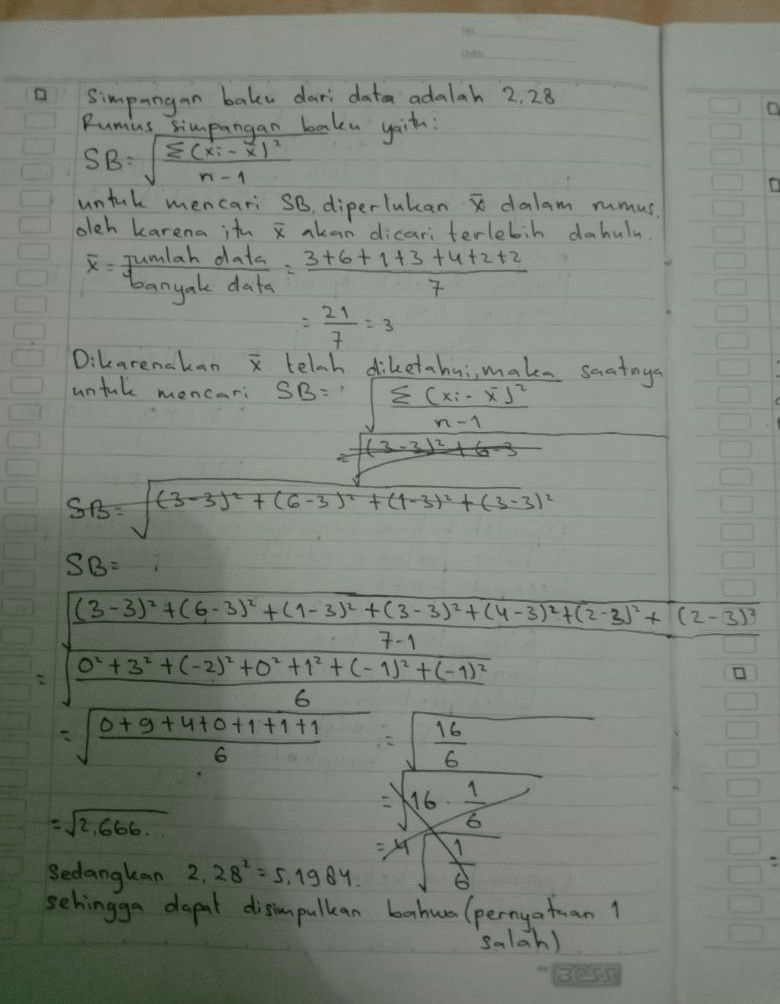 No
Date
Simpangan baku dari data adalah 2,28
Rumus simpangan baku yaitu:
SB = √(Σ(xi - x̄)² / n-1)
untuk mencari SB, diperlukan x̄ dalam rumus,
oleh karena itu x̄ akan dicari terlebih dahulu.
x̄ = Jumlah data / banyak data = 3+6+1+3+4+2+2 / 7
= 21/7 = 3
Dikarenakan x̄ telah diketahui, maka saatnya
untuk mencari SB = √(Σ(xi - x̄)² / n-1)
= √(3-3)² + 6-3
SB = √(3-3)² + (6-3)² + (1-3)² + (3-3)²
SB =
√((3-3)² + (6-3)² + (1-3)² + (3-3)² + (4-3)² + (2-3)² + (2-3)² / 7-1)
= √(0² + 3² + (-2)² + 0² + 1² + (-1)² + (-1)² / 6)
= √(0+9+4+0+1+1+1 / 6) = √(16/6)
= √(16 · 1/6)
= √2,666...
= 4 √(1/6)
Sedangkan 2,28² = 5,1984.
sehingga dapat disimpulkan bahwa (pernyataan 1
salah)
BOSS